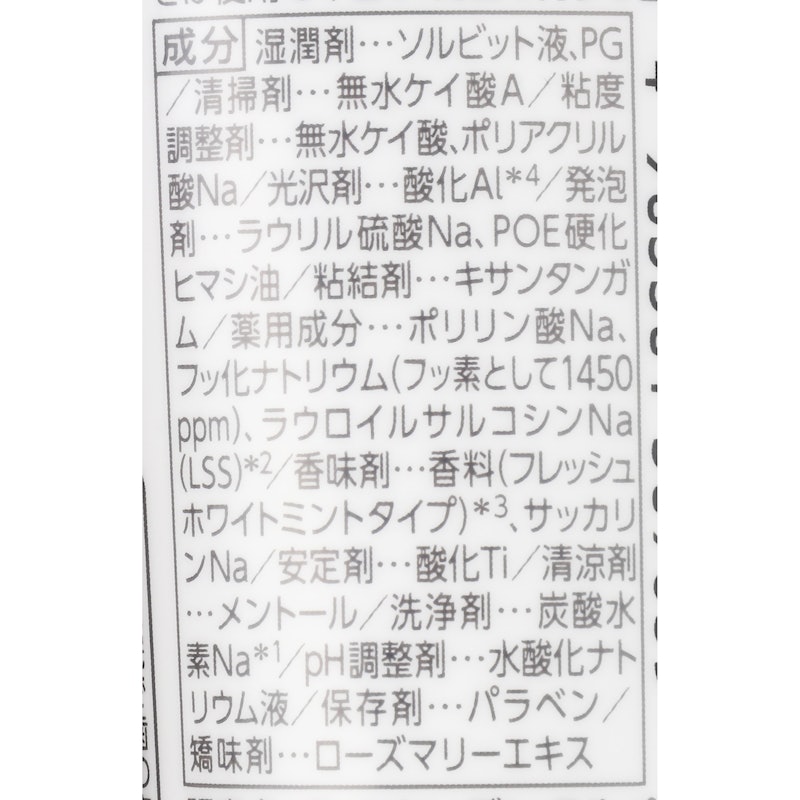 成分 湿潤剤…ソルビット液、PG
/清掃剤…無水ケイ酸A/粘度
調整剤…無水ケイ酸、ポリアクリル
酸Na/光沢剤…酸化Al*4/発泡
剤…ラウリル硫酸Na、POE硬化
ヒマシ油/粘結剤…キサンタンガ
ム/薬用成分…ポリリン酸Na、
フッ化ナトリウム(フッ素として1450
ppm)、ラウロイルサルコシンNa
(LSS)*2/香味剤…香料(フレッシュ
ホワイトミントタイプ)*3、サッカリ
ンNa/安定剤…酸化Ti/清涼剤
…メントール/洗浄剤…炭酸水
素Na*1/pH調整剤…水酸化ナト
リウム液/保存剤…パラベン/
矯味剤…ローズマリーエキス